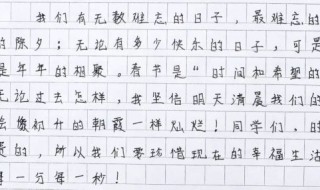 我们有无数难忘的日子，最难忘的
的除夕；无论有多少快乐的日子，可是
是年年的相聚。春节是“时间和希望的
无论过去怎样，我坚信明天清晨我们的
会像初升的朝霞一样灿烂！同学们，时
贵的，所以我们要珍惜现在的幸福生活
每一分每一秒！